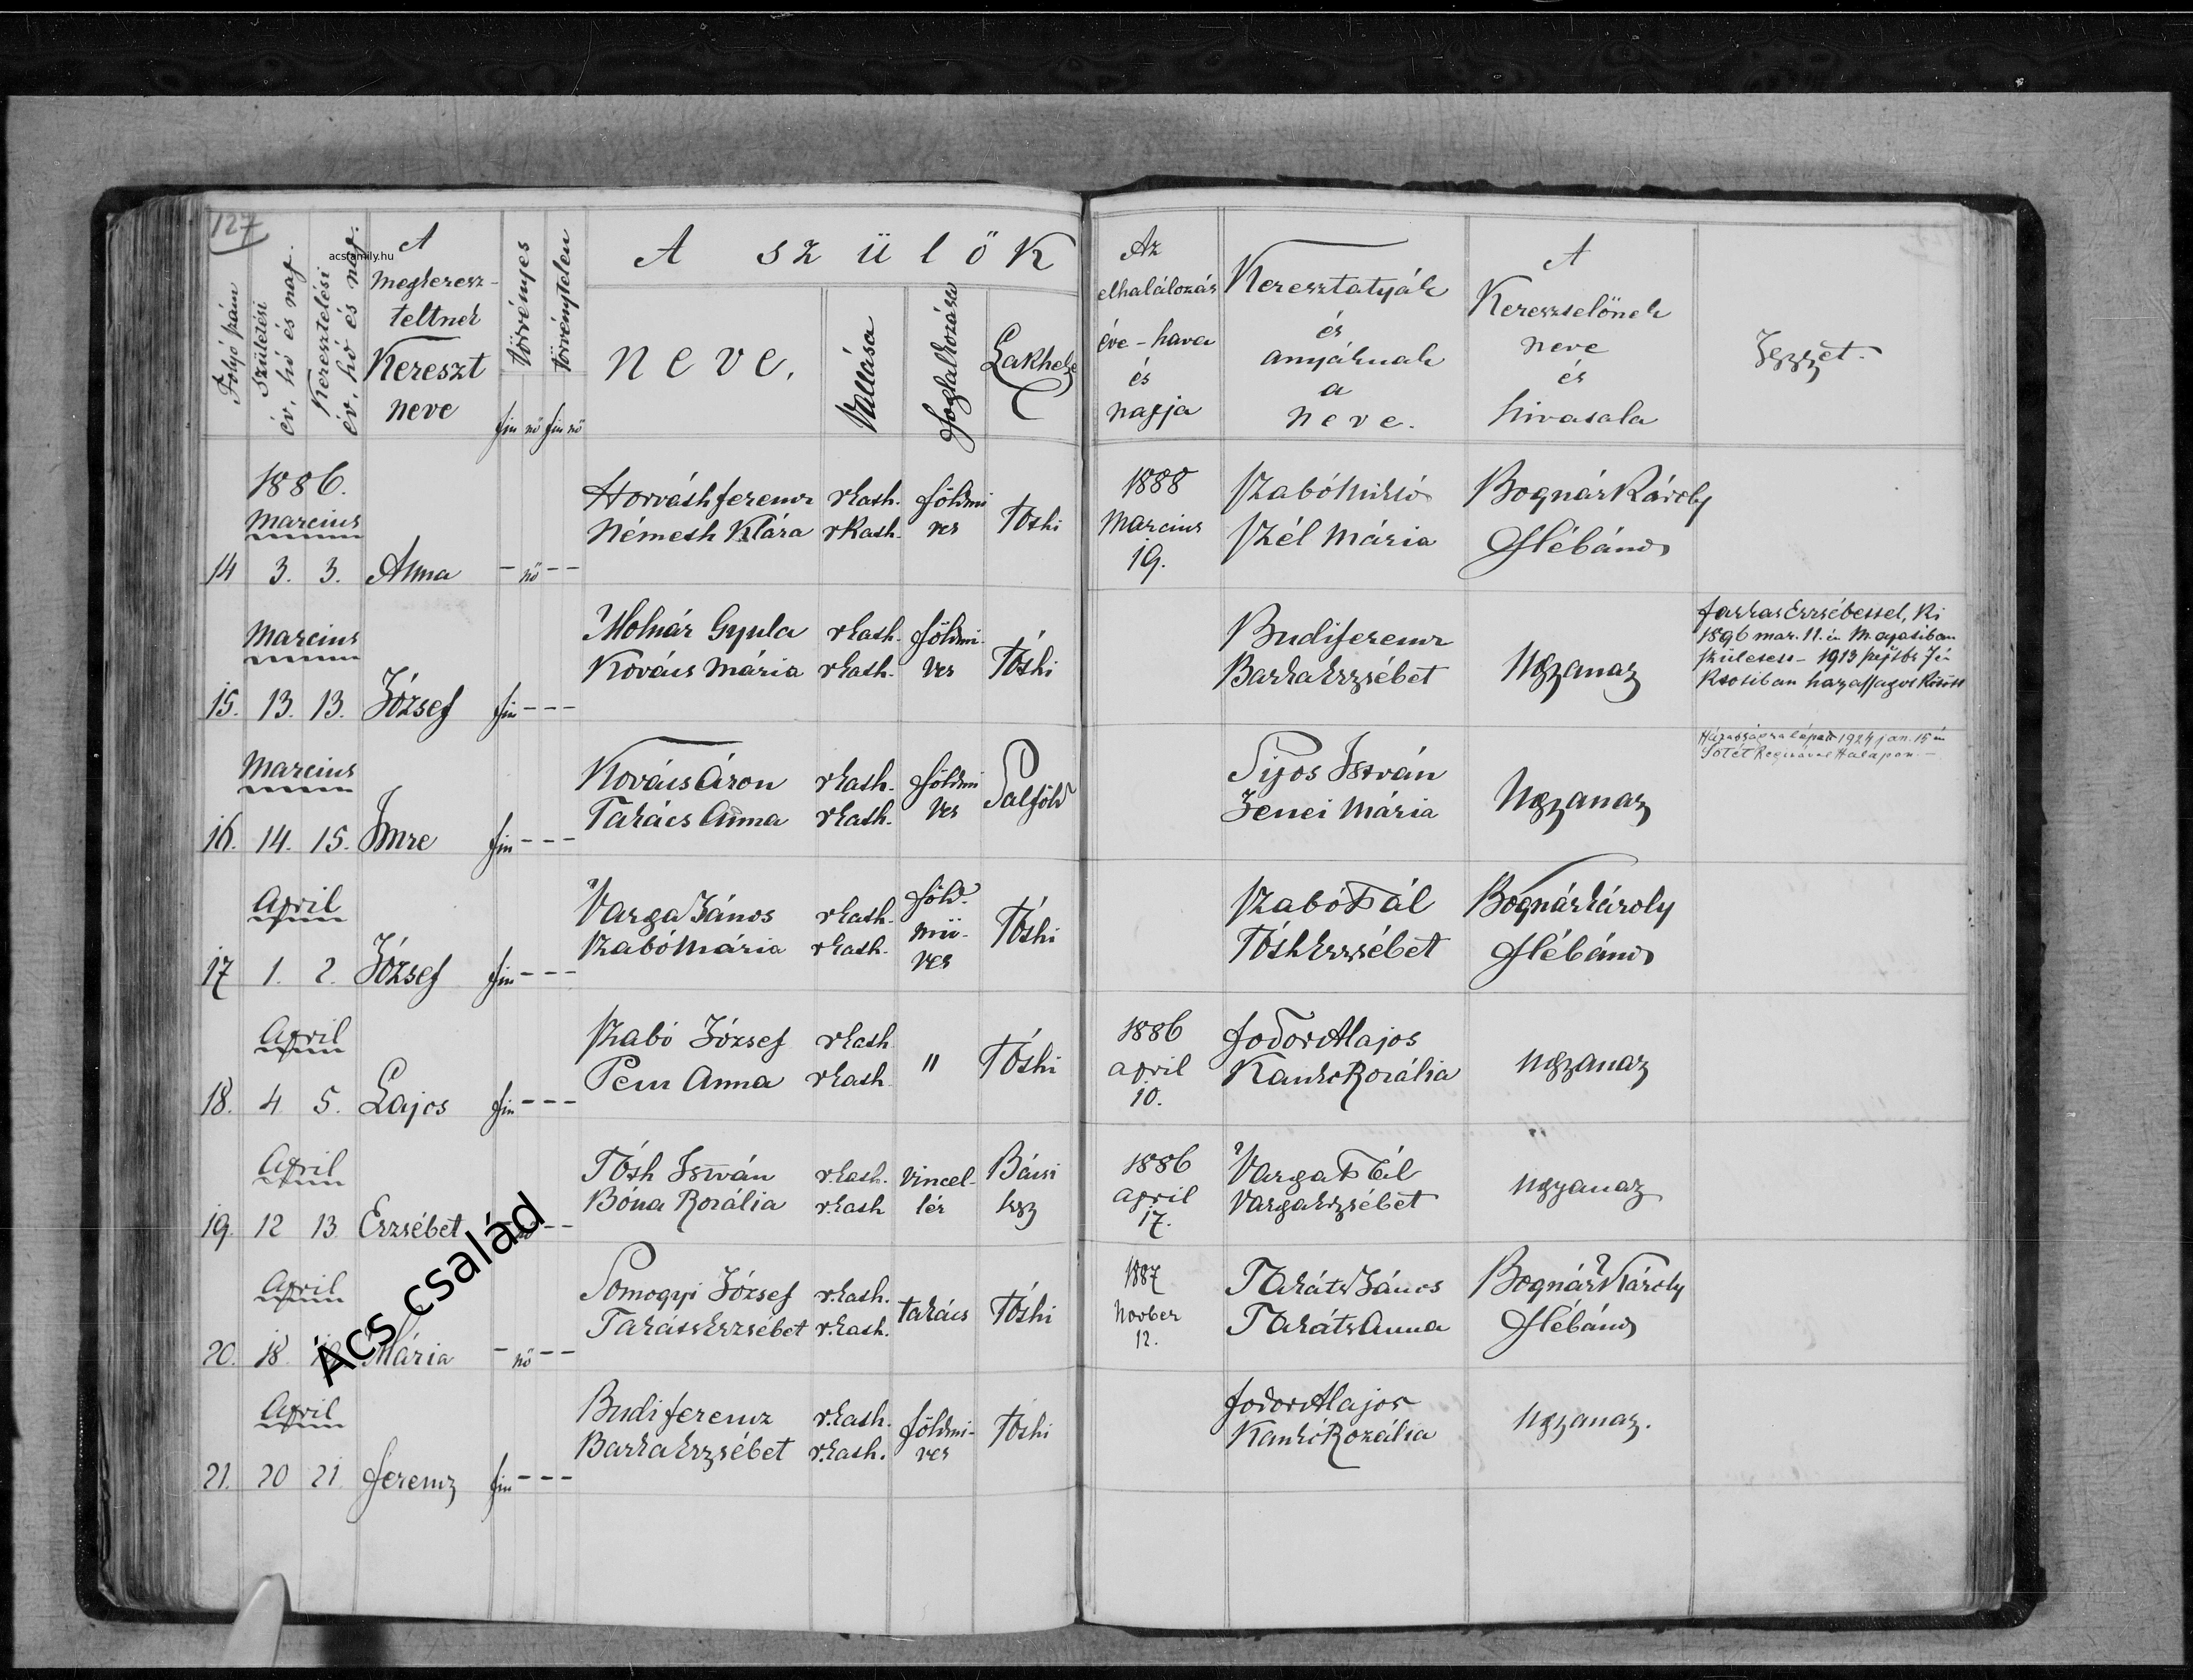 127
acsfamily.hu
Folyó szám
Születési
év, hó és nap.
Keresztelési
év, hó és nap.
A
megkeresz-
teltnek
Kereszt
neve
törvényes
törvénytelen
fiu nő fiu nő
A szülők
neve.
Vallása
foglalkozása
Lakhelye
Az
elhalálozás
éve - hava
és
napja
Keresztatyák
és
anyáknak
a
neve.
A
Keresztelőnek
neve
és
hivatala
Jegyzet.
1886.
Marcius
14 3. 3. Anna - nő - -
Horváth ferencz r kath. földmi
Németh Klára r kath. ves
Tóthi
1888
Marcius
19.
Szabó Miklós
Szél Mária
Bognár Károly
Plébános
Marcius
15. 13. 13. József fiu - - -
Molnár Gyula r kath. földmi-
Kovács Mária r kath. ves
Tóthi
Budi ferencz
Barka Erzsébet
Ugyanaz
farkas Erzsébettel, ki
1896 mar. 11. én
született - 1913
házasságot kötött
Marcius
16. 14. 15. Imre fiu - - -
Kovács Áron r kath. földmi
Takács Anna r kath. ves
Salföld
Sipos István
Jenei Mária
Ugyanaz
Házasságra lépett 1924 jan. 15 én
Halápon. -
April
17 1. 2. József fiu - - -
Varga János r kath.
Szabó Mária r kath.
föld-
mü-
ves
Tóthi
Szabó Pál
Tóth Erzsébet
Bognár Károly
Plébános
April
18. 4 5. Lajos fiu - - -
Szabó József r kath
Anna r kath
" Tóthi
1886
april
10.
fodor Alajos
Kankó Rozália
ugyanaz
April
19. 12 13. Erzsébet
Tóth István r. kath. vincel-
Bóna Rozália r. kath lér
Bácsi
hegy
1886
april
17.
Varga Pál
Varga Erzsébet
ugyanaz
April
20. 18 Mária - nő - -
Somogyi József r. kath.
Takáts Erzsébet r. kath.
takács Tóthi
1887
Novber
12.
Takáts János
Takáts Anna
Bognár Károly
Plébános
April
21. 20 21. ferencz fiu - - -
Budi ferencz r. kath. földmi-
Barka Erzsébet r. kath. ves
Tóthi
fodor Alajos
Kankó Rozália
ugyanaz.
Ács család